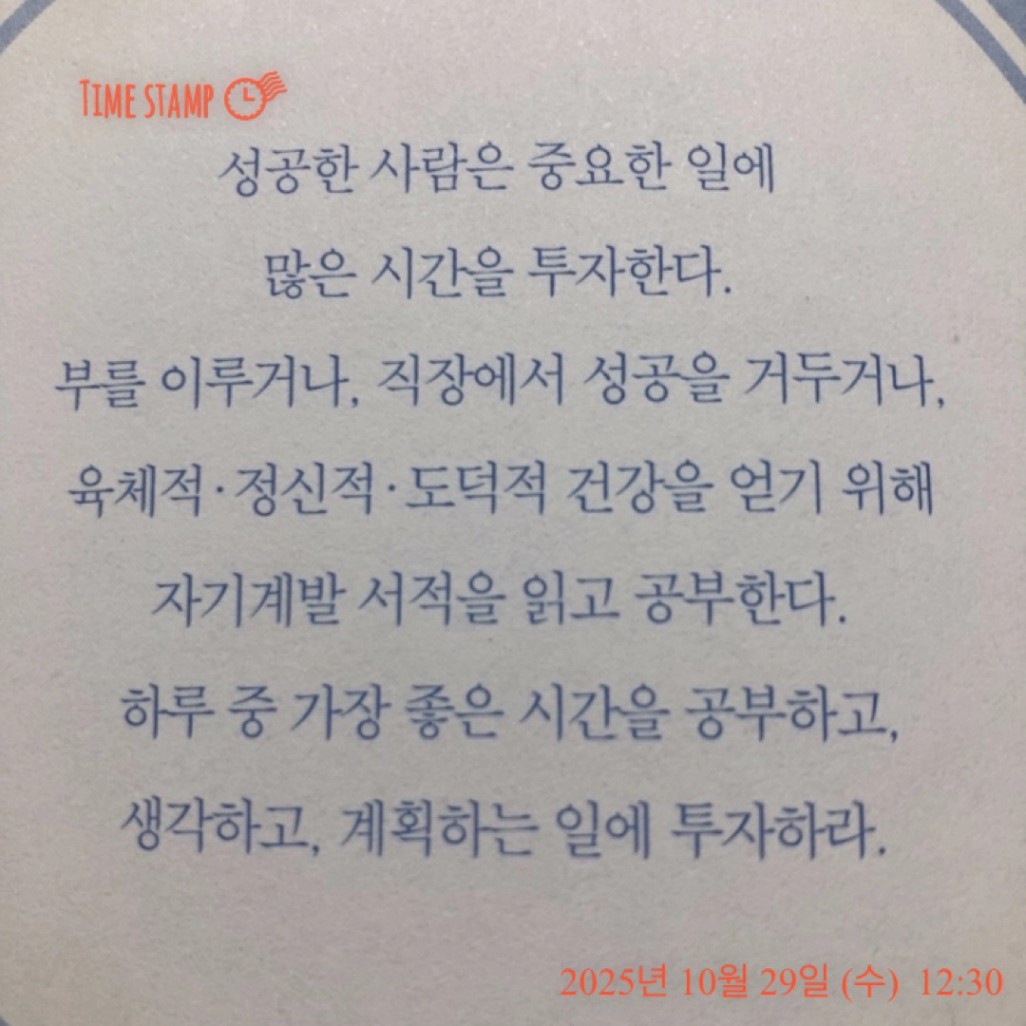 TIME STAMP
성공한 사람은 중요한 일에
많은 시간을 투자한다.
부를 이루거나, 직장에서 성공을 거두거나,
육체적·정신적·도덕적 건강을 얻기 위해
자기계발 서적을 읽고 공부한다.
하루 중 가장 좋은 시간을 공부하고,
생각하고, 계획하는 일에 투자하라.
2025년 10월 29일 (수) 12:30